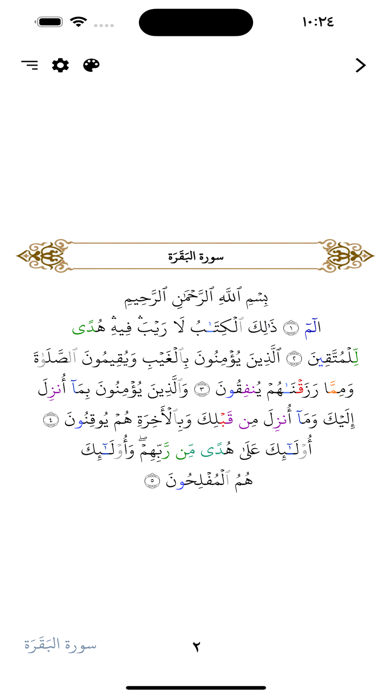 ١٠:٢٤
سورة البَقَرَة
بِسْمِ ٱللَّهِ ٱلرَّحْمَٰنِ ٱلرَّحِيمِ
الٓمٓ ١ ذَٰلِكَ ٱلْكِتَٰبُ لَا رَيْبَ ۛ فِيهِ ۛ هُدًى
لِّلْمُتَّقِينَ ٢ ٱلَّذِينَ يُؤْمِنُونَ بِٱلْغَيْبِ وَيُقِيمُونَ ٱلصَّلَوٰةَ
وَمِمَّا رَزَقْنَٰهُمْ يُنفِقُونَ ٣ وَٱلَّذِينَ يُؤْمِنُونَ بِمَآ أُنزِلَ
إِلَيْكَ وَمَآ أُنزِلَ مِن قَبْلِكَ وَبِٱلْأَخِرَةِ هُمْ يُوقِنُونَ ٤
أُو۟لَٰٓئِكَ عَلَىٰ هُدًى مِّن رَّبِّهِمْ ۖ وَأُو۟لَٰٓئِكَ
هُمُ ٱلْمُفْلِحُونَ ٥
سورة البَقَرَة
٢